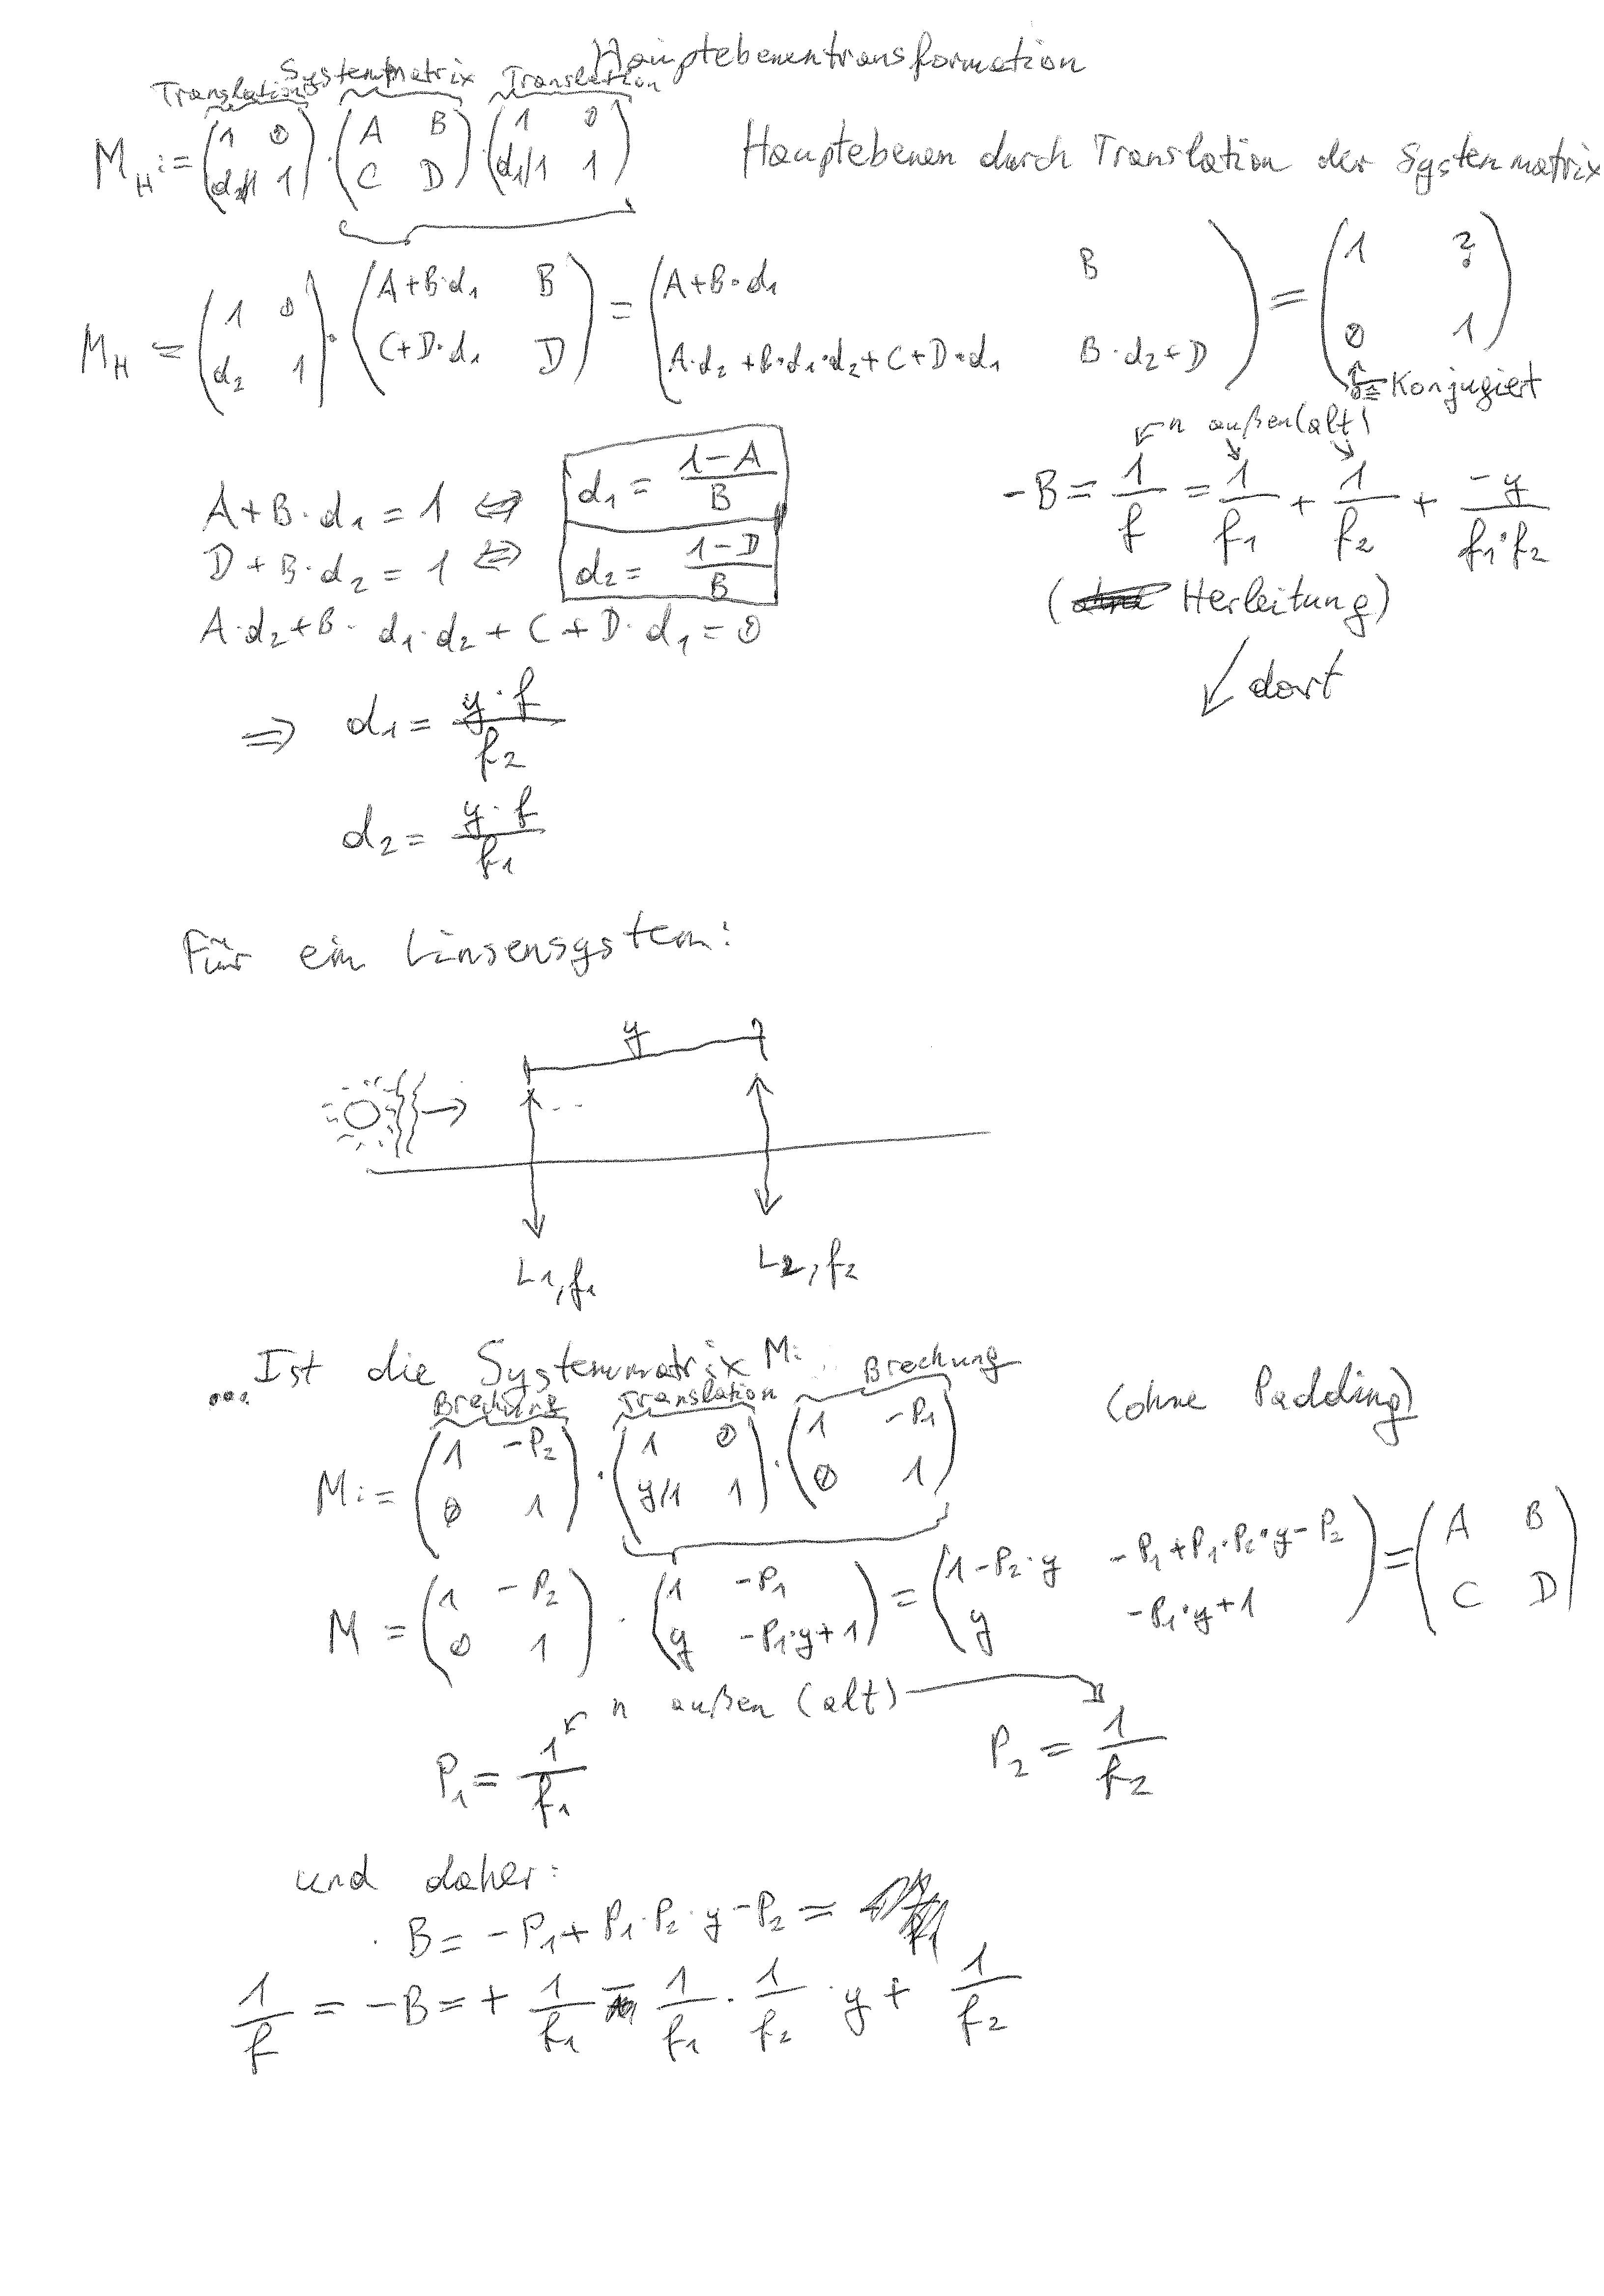 Hauptebenentransformation
Translation Systemmatrix Translation
M_H := (1 0; d₂/1 1) · (A B; C D) · (1 0; d₁/1 1) Hauptebenen durch Translation der Systemmatrix
M_H = (1 0; d₂ 1) · (A+B·d₁ B; C+D·d₁ D) = (A+B·d₁ B; A·d₂+B·d₁·d₂+C+D·d₁ B·d₂+D) = (1 ?; 0 1)
≙ Konjugiert
n außen (alt)
A+B·d₁ = 1 ⇔ d₁ = (1−A)/B
−B = 1/f = 1/f₁ + 1/f₂ + −y/(f₁·f₂)
D+B·d₂ = 1 ⇔ d₂ = (1−D)/B
( Herleitung)
A·d₂+B·d₁·d₂+C+D·d₁ = 0
↙ dort
⇒ d₁ = y·f/f₂
d₂ = y·f/f₁
Für ein Linsensystem:
y
L1, f₁ L2, f₂
... Ist die Systemmatrix M:
Brechung Translation Brechung (ohne Padding)
M := (1 −P₂; 0 1) · (1 0; y/1 1) · (1 −P₁; 0 1)
M = (1 −P₂; 0 1) · (1 −P₁; y −P₁·y+1) = (1−P₂·y −P₁+P₁·P₂·y−P₂; y −P₁·y+1) = (A B; C D)
n außen (alt)
P₁ = 1/f₁ P₂ = 1/f₂
und daher:
B = −P₁+P₁·P₂·y−P₂ =
1/f = −B = + 1/f₁ − 1/f₁ · 1/f₂ · y + 1/f₂